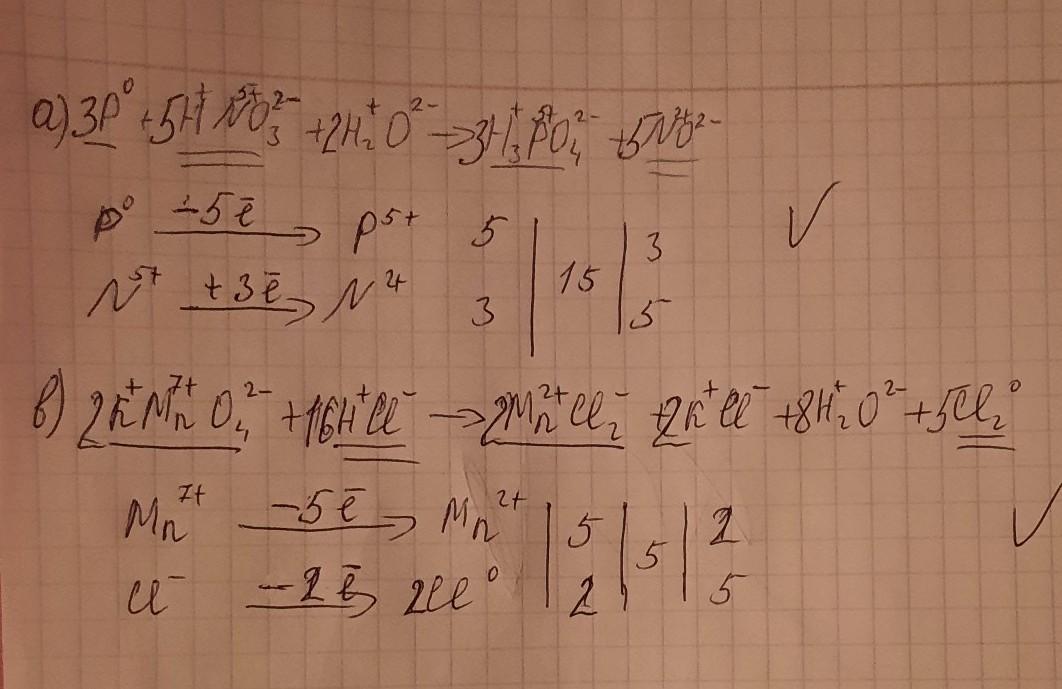 а) 3P⁰ + 5H⁺N⁵⁺O₃²⁻ + 2H₂⁺O²⁻ → 3H₃⁺P⁵⁺O₄²⁻ + 5N²⁺O²⁻
P⁰ −5ē → P⁵⁺ 5 | | 3 ✓
15
N⁵⁺ +3ē → N²⁺ 3 | | 5
в) 2K⁺Mn⁷⁺O₄²⁻ + 16H⁺Cl⁻ → 2Mn²⁺Cl₂⁻ + 2K⁺Cl⁻ + 8H₂⁺O²⁻ + 5Cl₂⁰
Mn⁷⁺ −5ē → Mn²⁺ | 5 | | 2 ✓
5
Cl⁻ −2ē → 2Cl⁰ | 2 | | 5